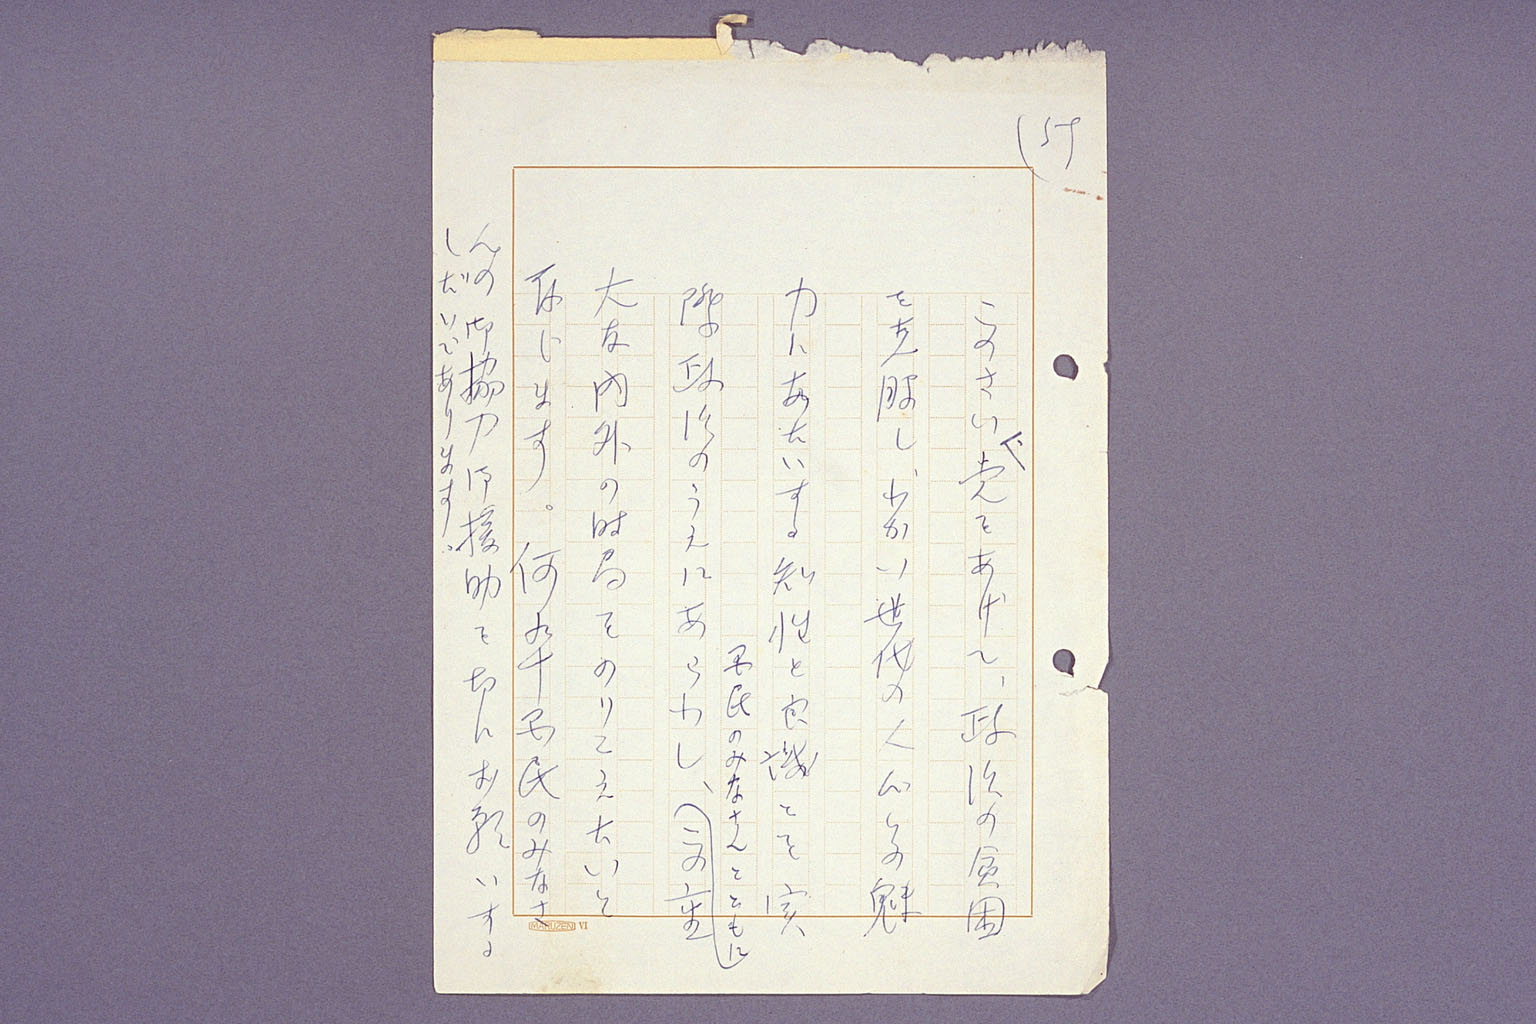 このさい党をあげて、政治の貧困
を克服し、わかい世代の人心への魅
力にあたいする知性と良識とを実
国民のみなさんとともに
際政治のうえにあらわし、この重
大な内外の時局をのりこえたいと
存じます。何卒国民のみなさ
んの御協力御援助を切にお願いする
しだいであります。
MARUZEN VI